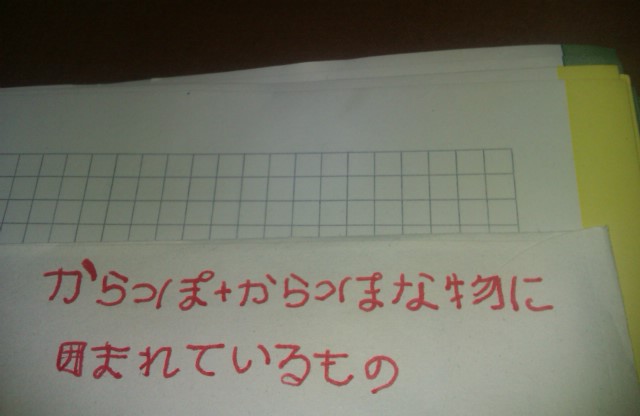 からっぽ+からっぽな物に
囲まれているもの